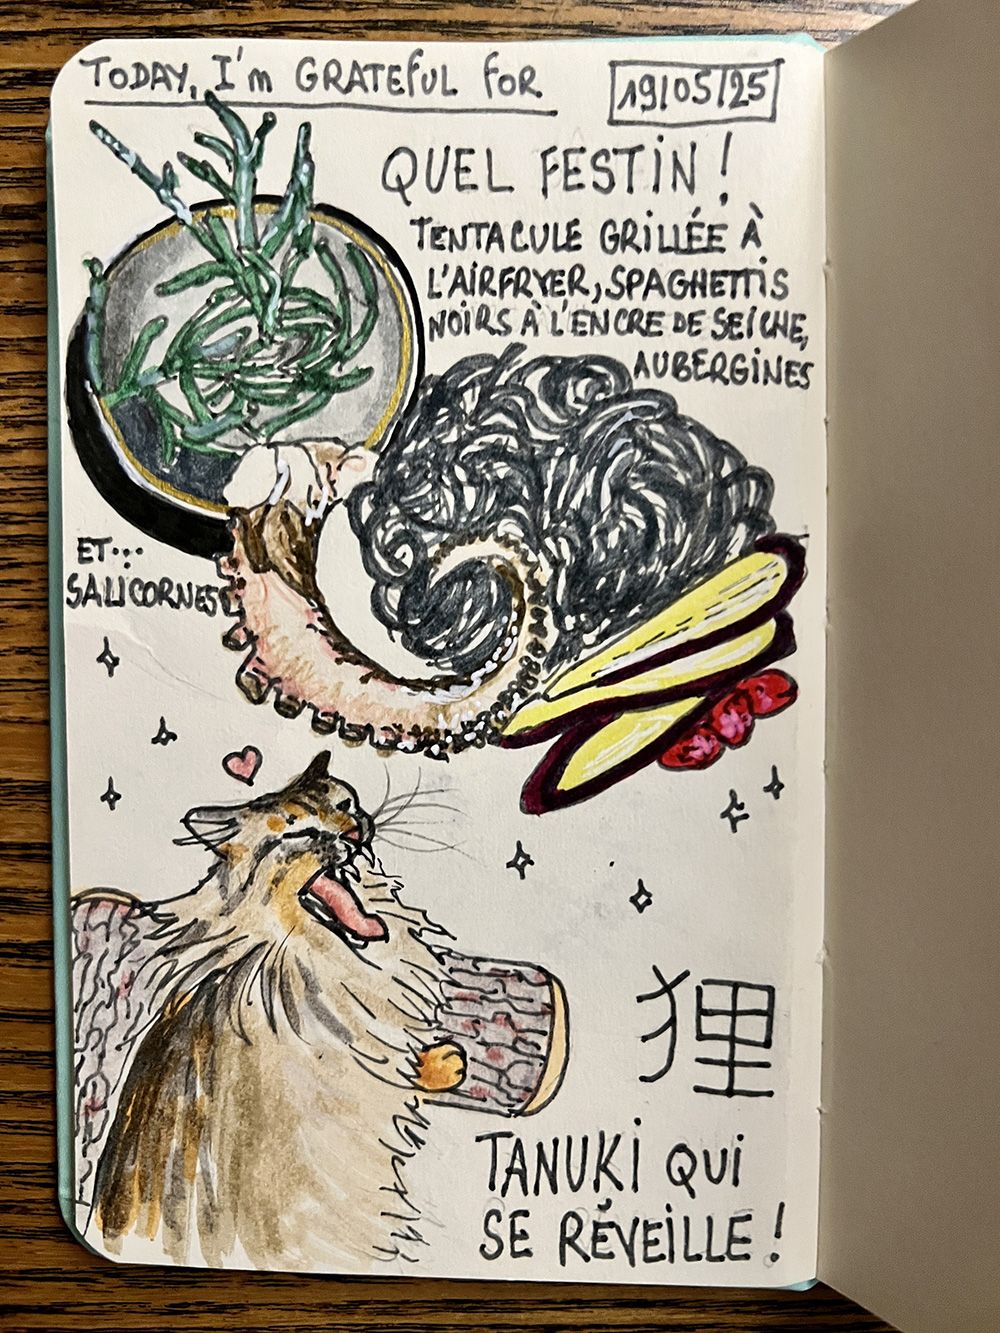 TODAY, I'm GRATEFUL FOR
19/05/25
QUEL FESTIN !
TENTACULE GRILLÉE À
L'AIRFRYER, SPAGHETTIS
NOIRS À L'ENCRE DE SEICHE,
AUBERGINES
ET...
SALICORNES
狸
TANUKI QUI
SE RÉVEILLE !